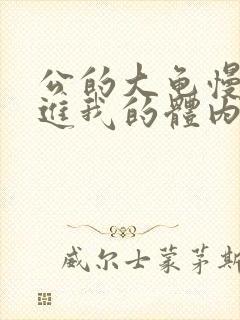 公的大龟慢
进我的體内
威尔士蒙茅斯